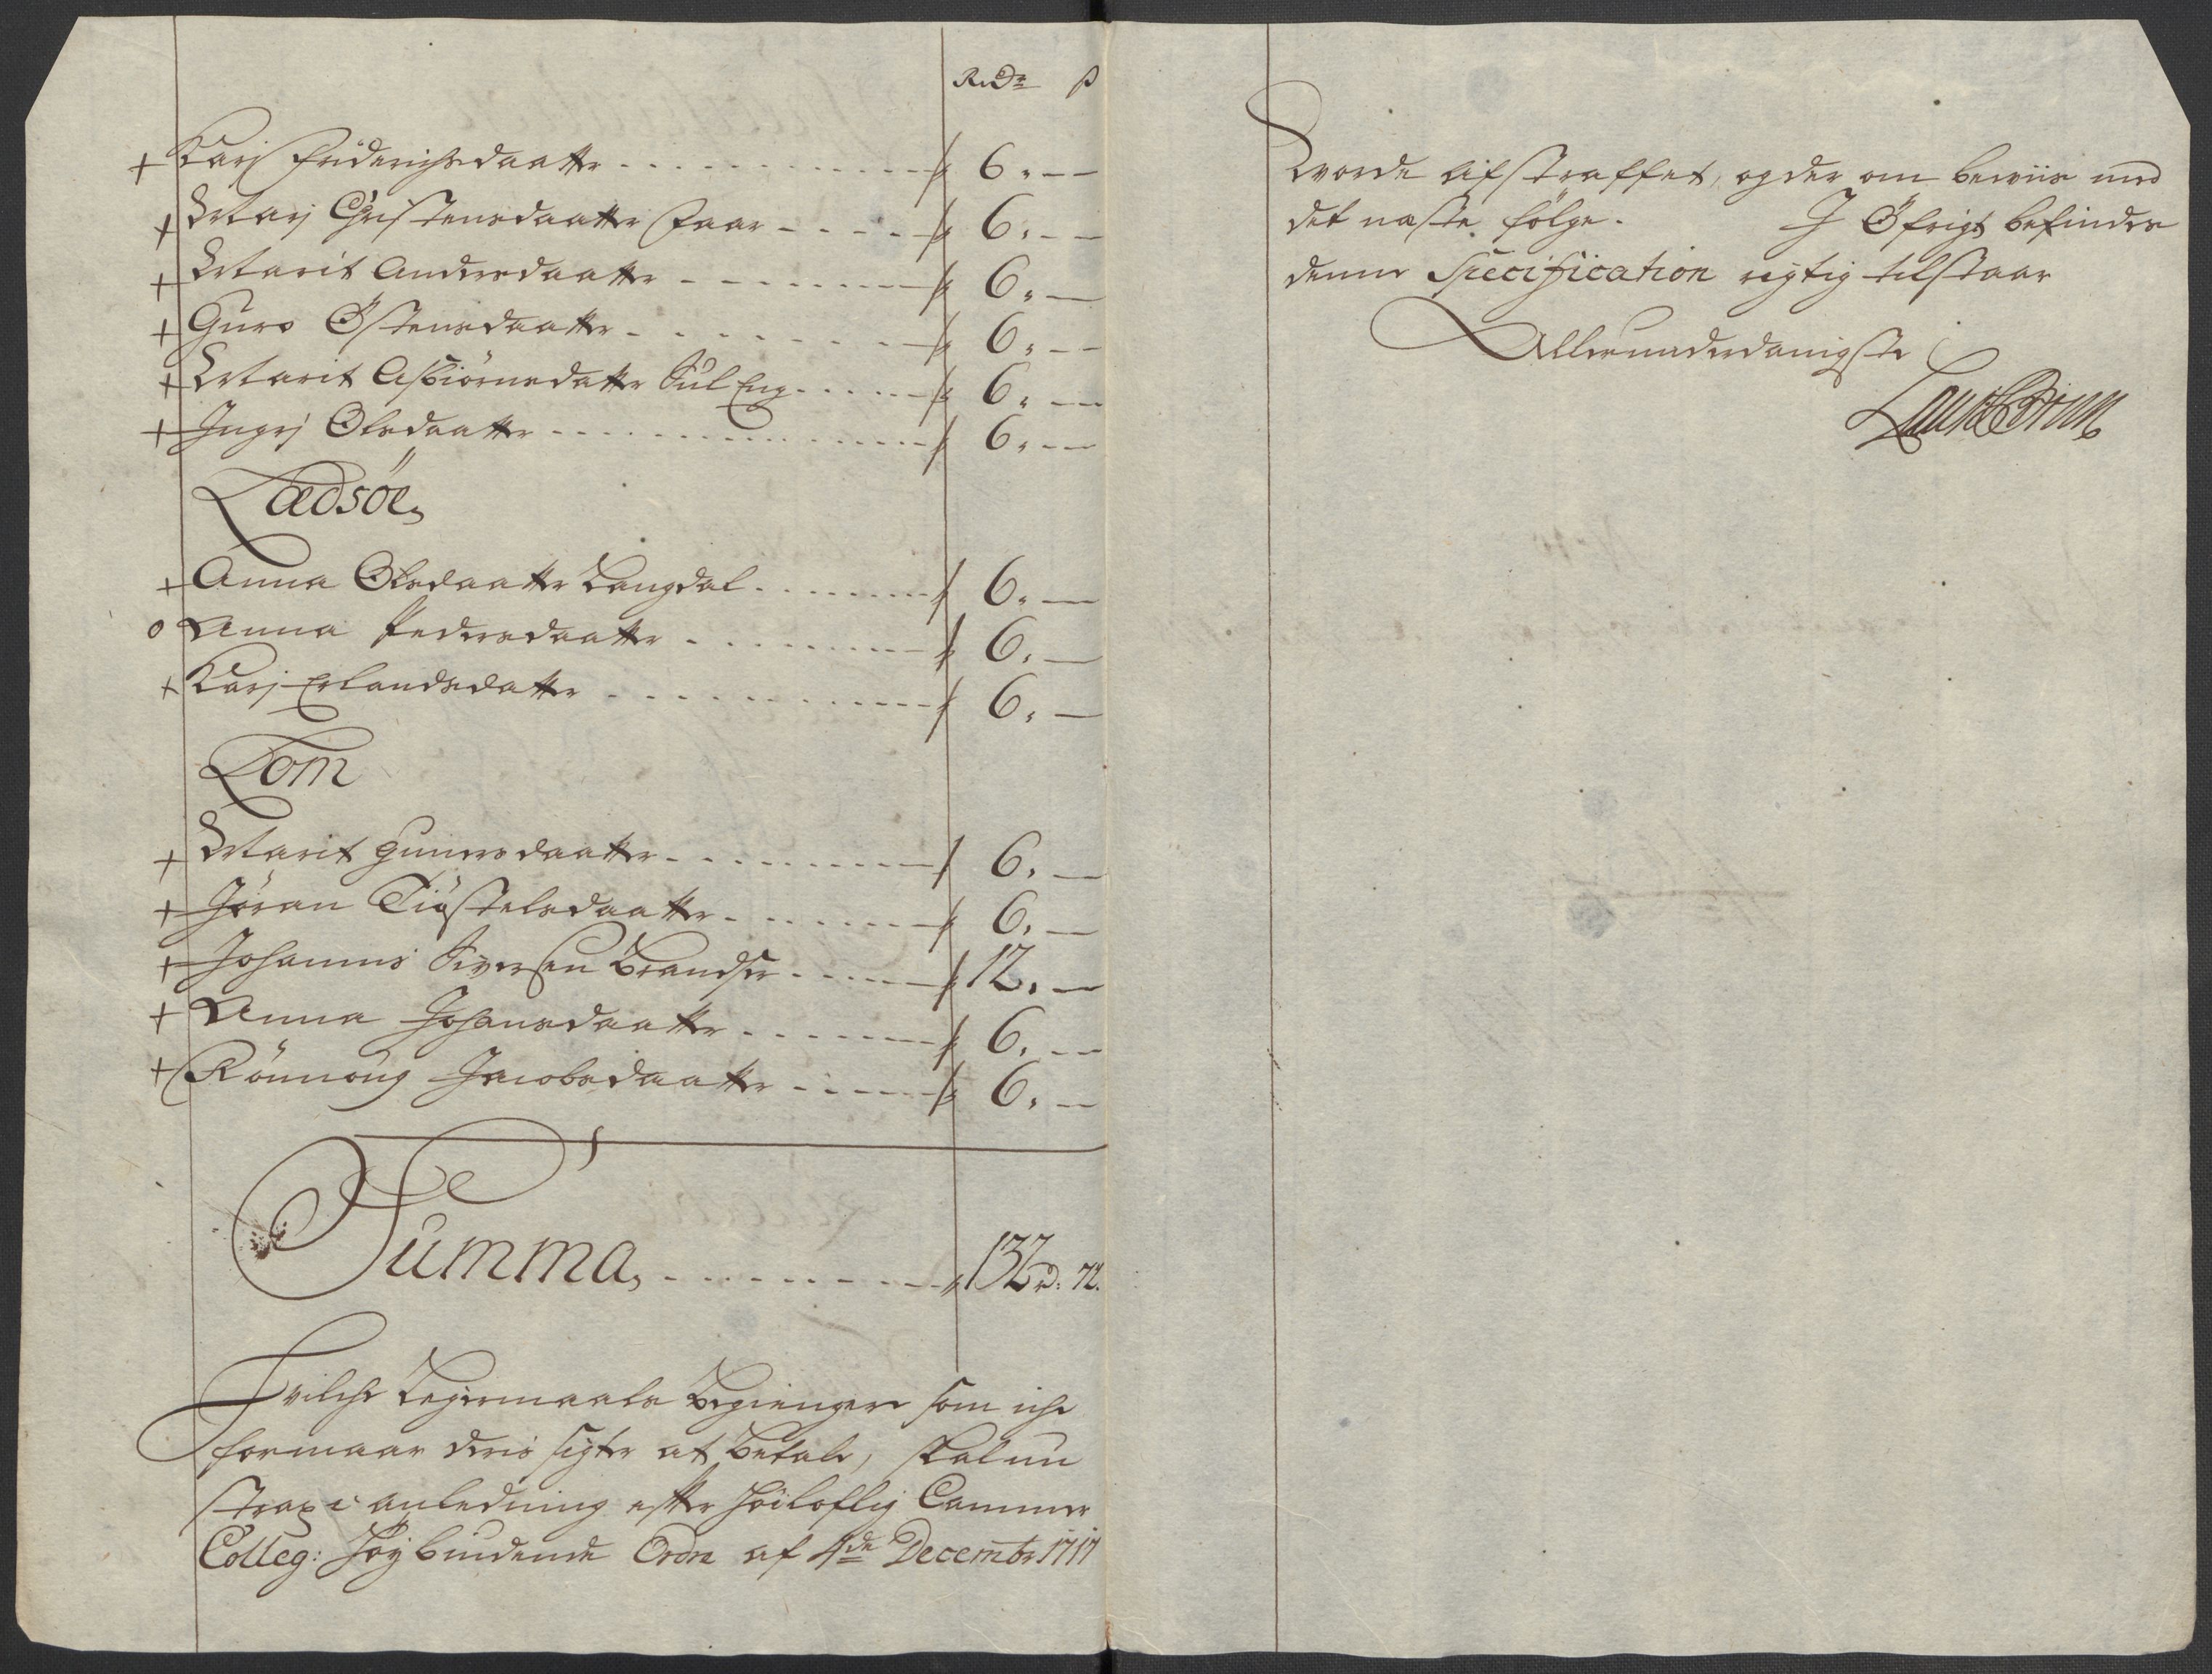 Rixdr ß
+ Karj Friderichsdaatter - - - - 6. - -
+ Marj Christensdaatter Faar - - - - 6. - -
+ Marit Andersdaatter - - - - 6. -
+ Guro Østensdaatter - - - - 6. - -
+ Marit Asbiørnsdatter Sül Eng - - - - 6. - -
+ Ingrj Olsdaatter - - - - 6. - -
Lædsöe
+ Anna Olsdaatter Langdal - - - - 6. -
o Anna Pedersdaatter - - - - 6. -
+ Karj Erlandsdatter - - - - 6. -
Lom
+ Marit Gunersdaatter - - - - 6. -
+ Jöran Tiøstelsdaatter - - - - 6. -
+ Johannis Siversen Brandser - - - - 12. -
+ Anna Johansdaatter - - - - 6. - -
+ Rönnoug Jacobsdaatter - - - - 6. -
Summa - - - - 132 rd: 72.
Hvilche Legermaals Begiengere som iche
formaar deris sigter at betale, skal nu
strax i anledning efter Høiloflig Cammer
Colleg: Høybudende Ordre af 4de Decembr 1717
vorde afstraffet, og der om beviis med
det næste følge. J Øfrigt befindes
denne Specification rigtig tilstaar
Allerunderdanigste